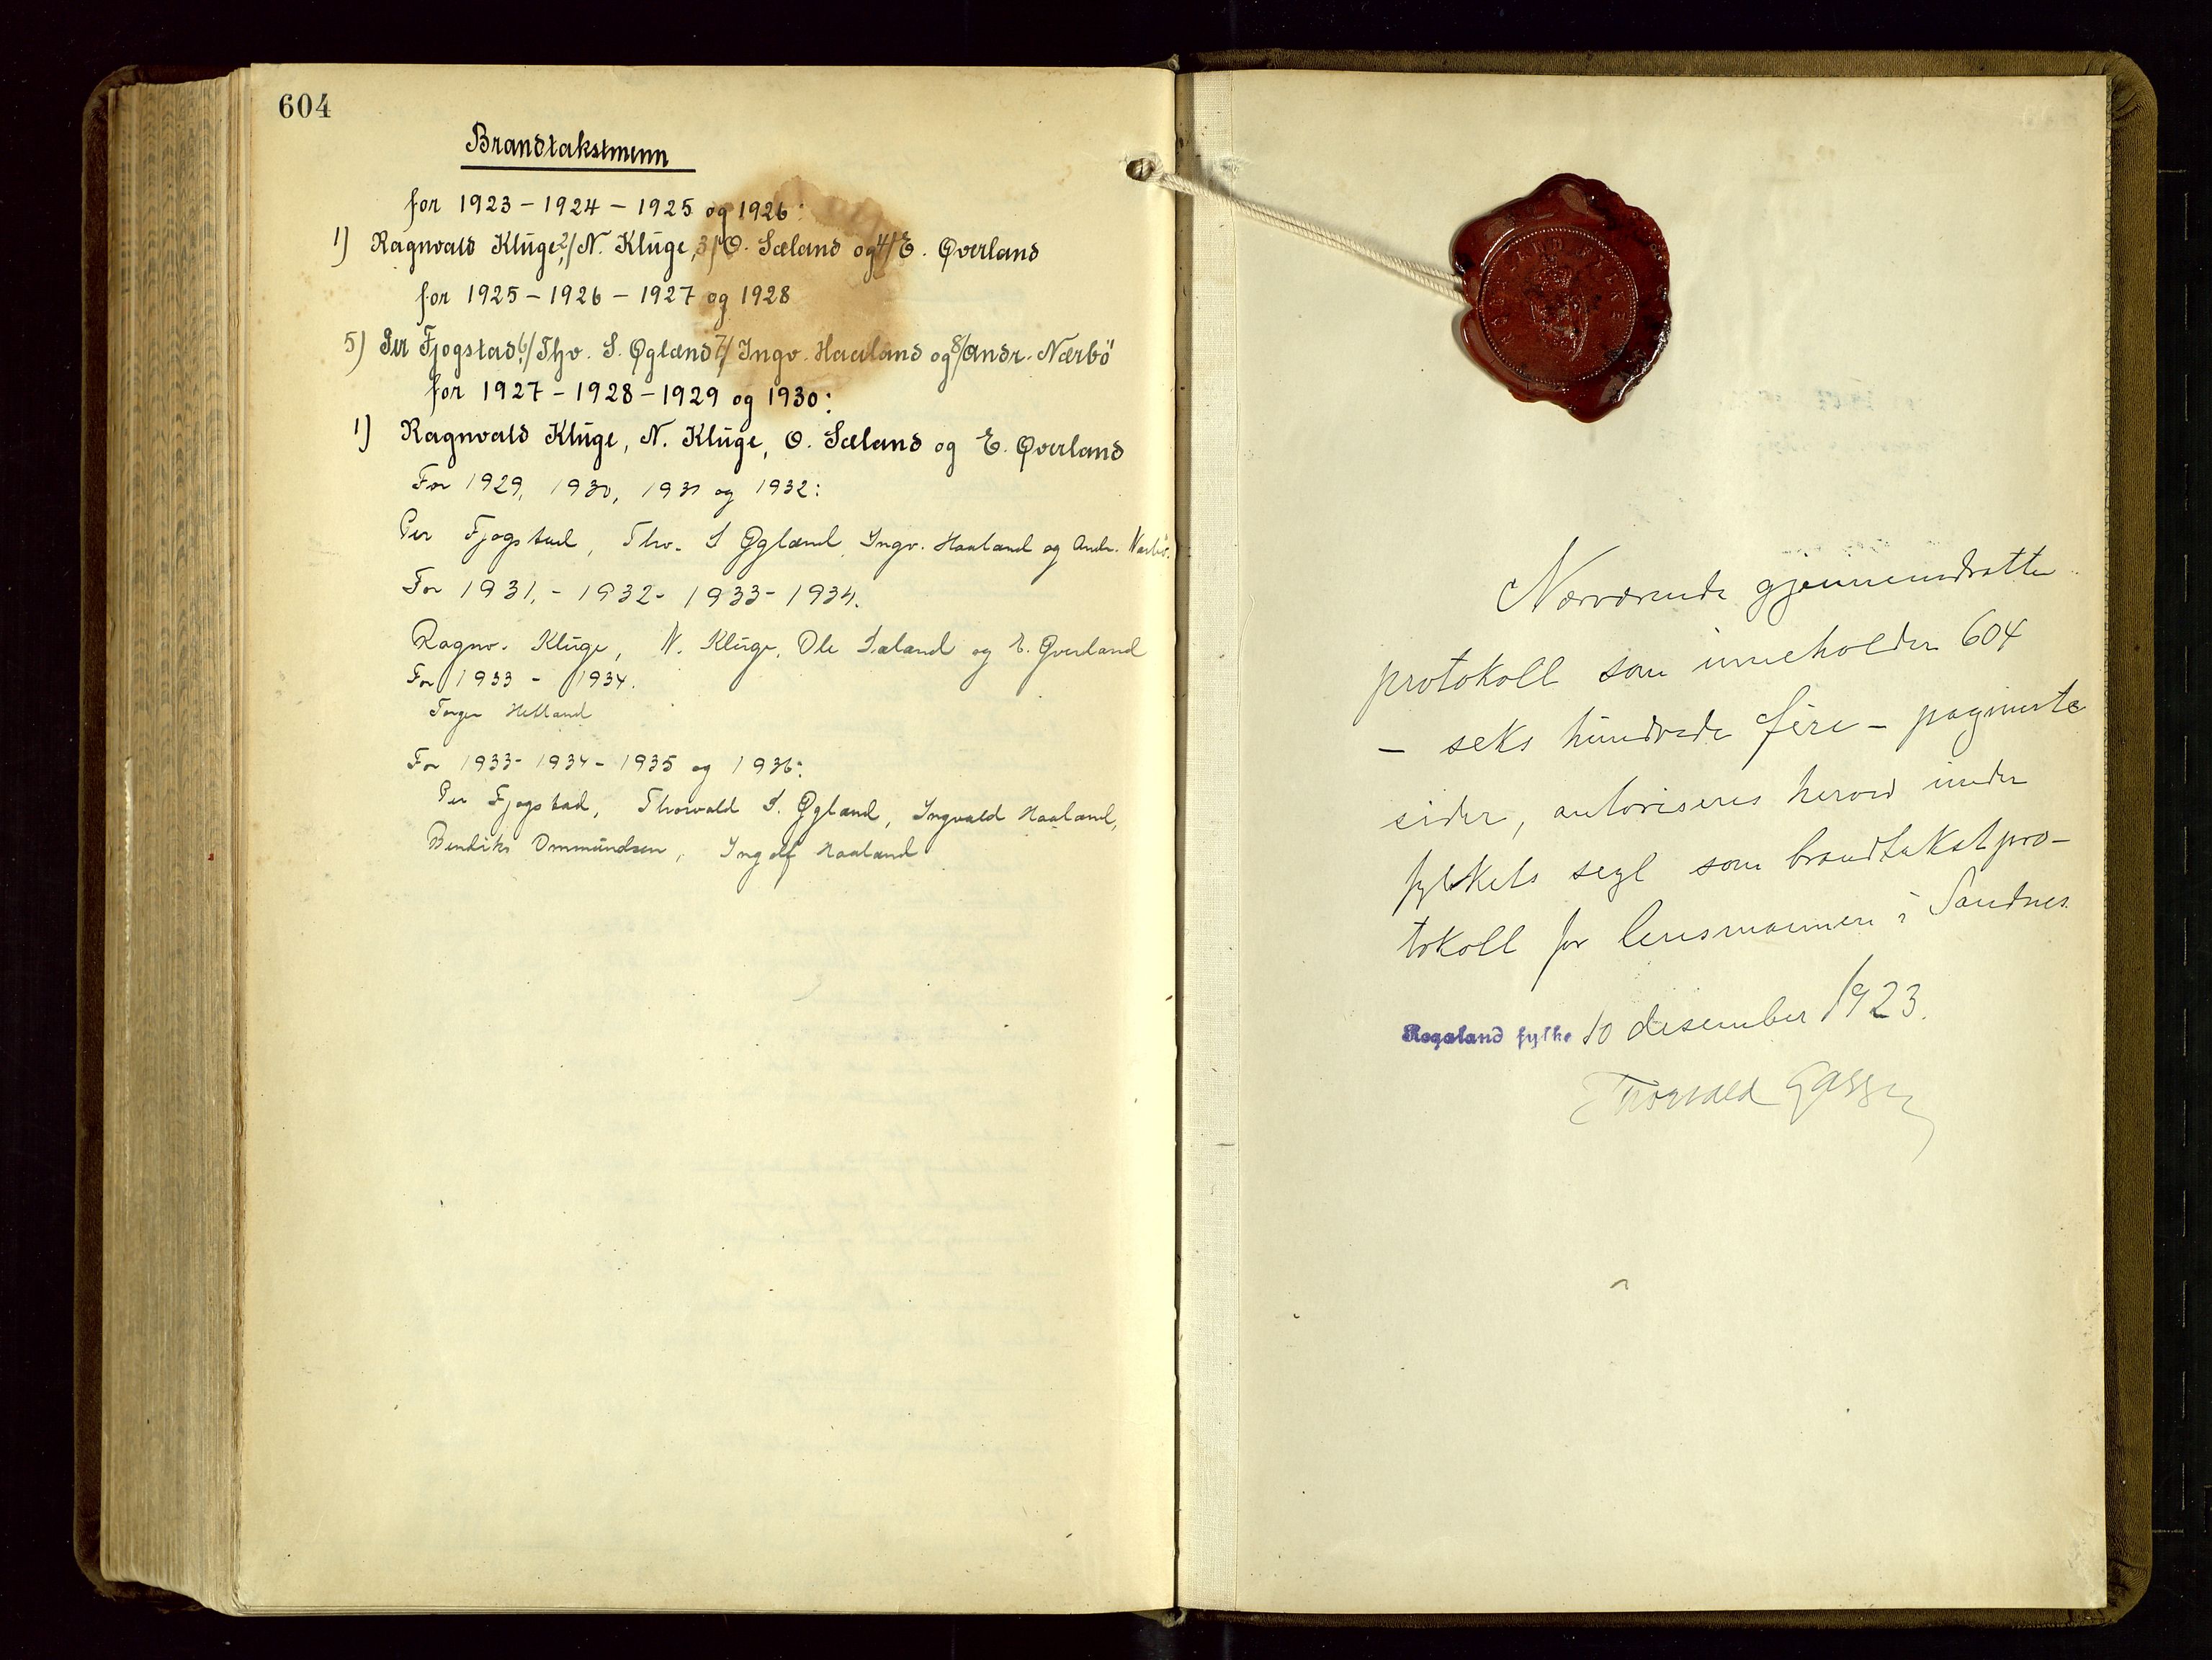 604
Brandtakstmenn
for 1923 - 1924 - 1925 og 1926:
1) Ragnvald Kluge, 2/ N. Kluge, 3/ O. Sæland og 4/ E. Qverland
for 1925 - 1926 - 1927 og 1928
5) Per Fjogstad, 6/ Thv. S. Øglænd 7/ Ingv. Haaland og 8/ Andr. Nærbö
for 1927 - 1928 - 1929 og 1930:
1) Ragnvald Kluge, N. Kluge, O. Sæland og E. Qverland
For 1929, 1930, 1931 og 1932:
Per Fjogstad, Thv. S Øglænd, Ingv. Haaland og Andr. Nærbö.
For 1931, - 1932 - 1933 - 1934.
Ragnv. Kluge, N. Kluge, Ole Sæland og E. Qverland
For 1933 - 1934.
Torger Hetland
For 1933 - 1934 - 1935 og 1936:
Per Fjogstad, Thorvald S. Øgland, Ingvald Haaland,
Bendiks Ommundsen, Ingolf Haaland
Nærværende gjennemdratte
protokoll som inneholder 604
- seks hundrede fire - paginerte
sider, autoriseres herved under
fylkets segl som brandtakstpro-
tokoll for lensmannen i Sandnes.
Rogaland fylke 10 desember 1923.
Thorvald